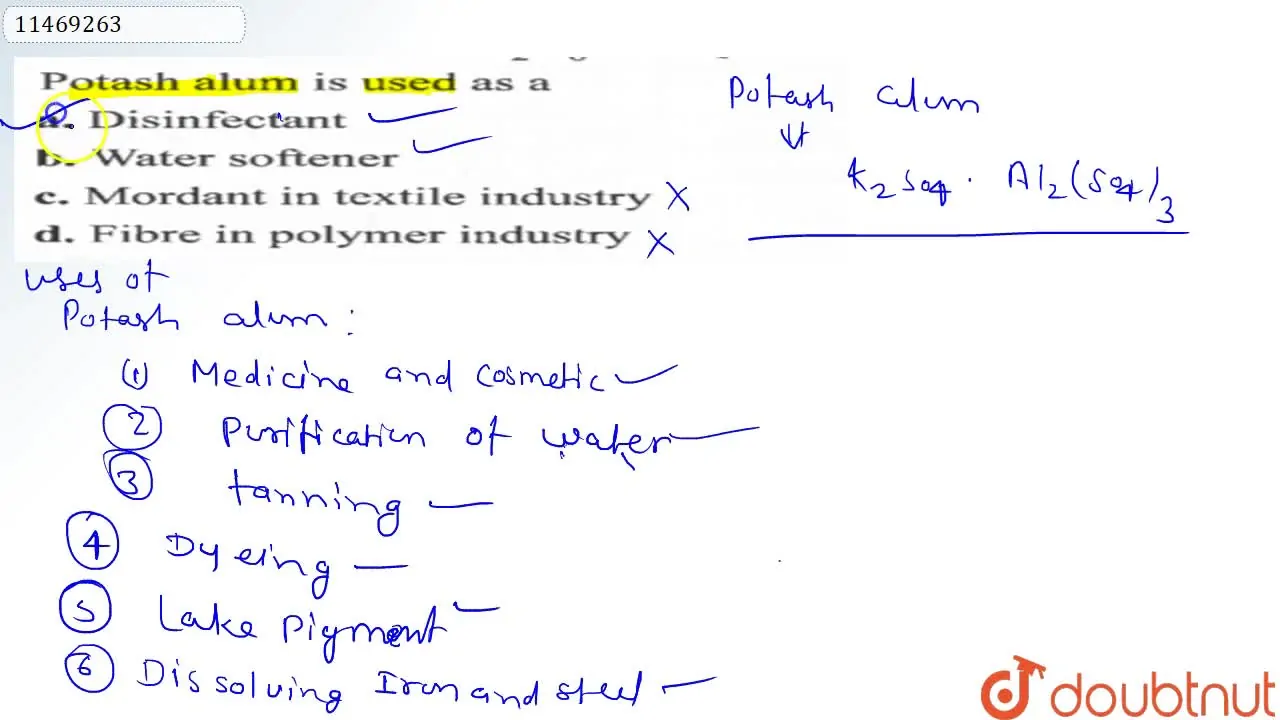 11469263
Potash alum is used as a
a. Disinfectant
b. Water softener
c. Mordant in textile industry X
d. Fibre in polymer industry X
Potash alum
K2SO4 . Al2(SO4)3
uses of
Potash alum :
(1) Medicine and cosmetic
2 Purification of water
3 tanning
4 Dyeing
5 Lake Pigment
6 Dissolving Iron and steel
doubtnut